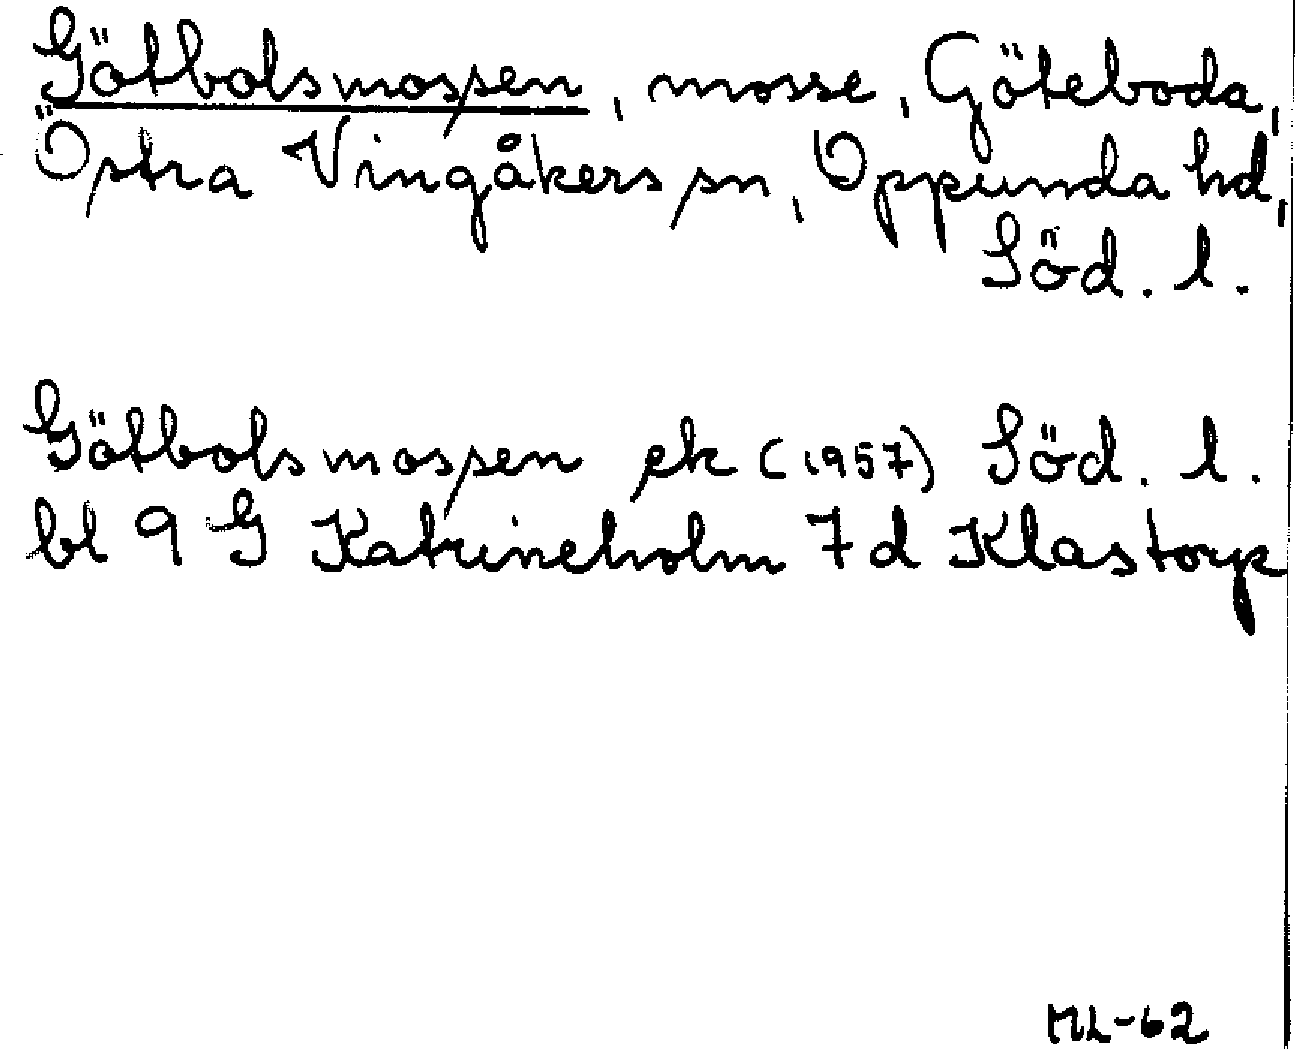 Götbolsmossen, mosse, Göteboda,
Östra Vingåkers sn, Oppunda hd,
Söd. l.
Götbolsmossen ek (1957) Söd. l.
bl 9 G Katrineholm 7 d Klastorp
ML-62